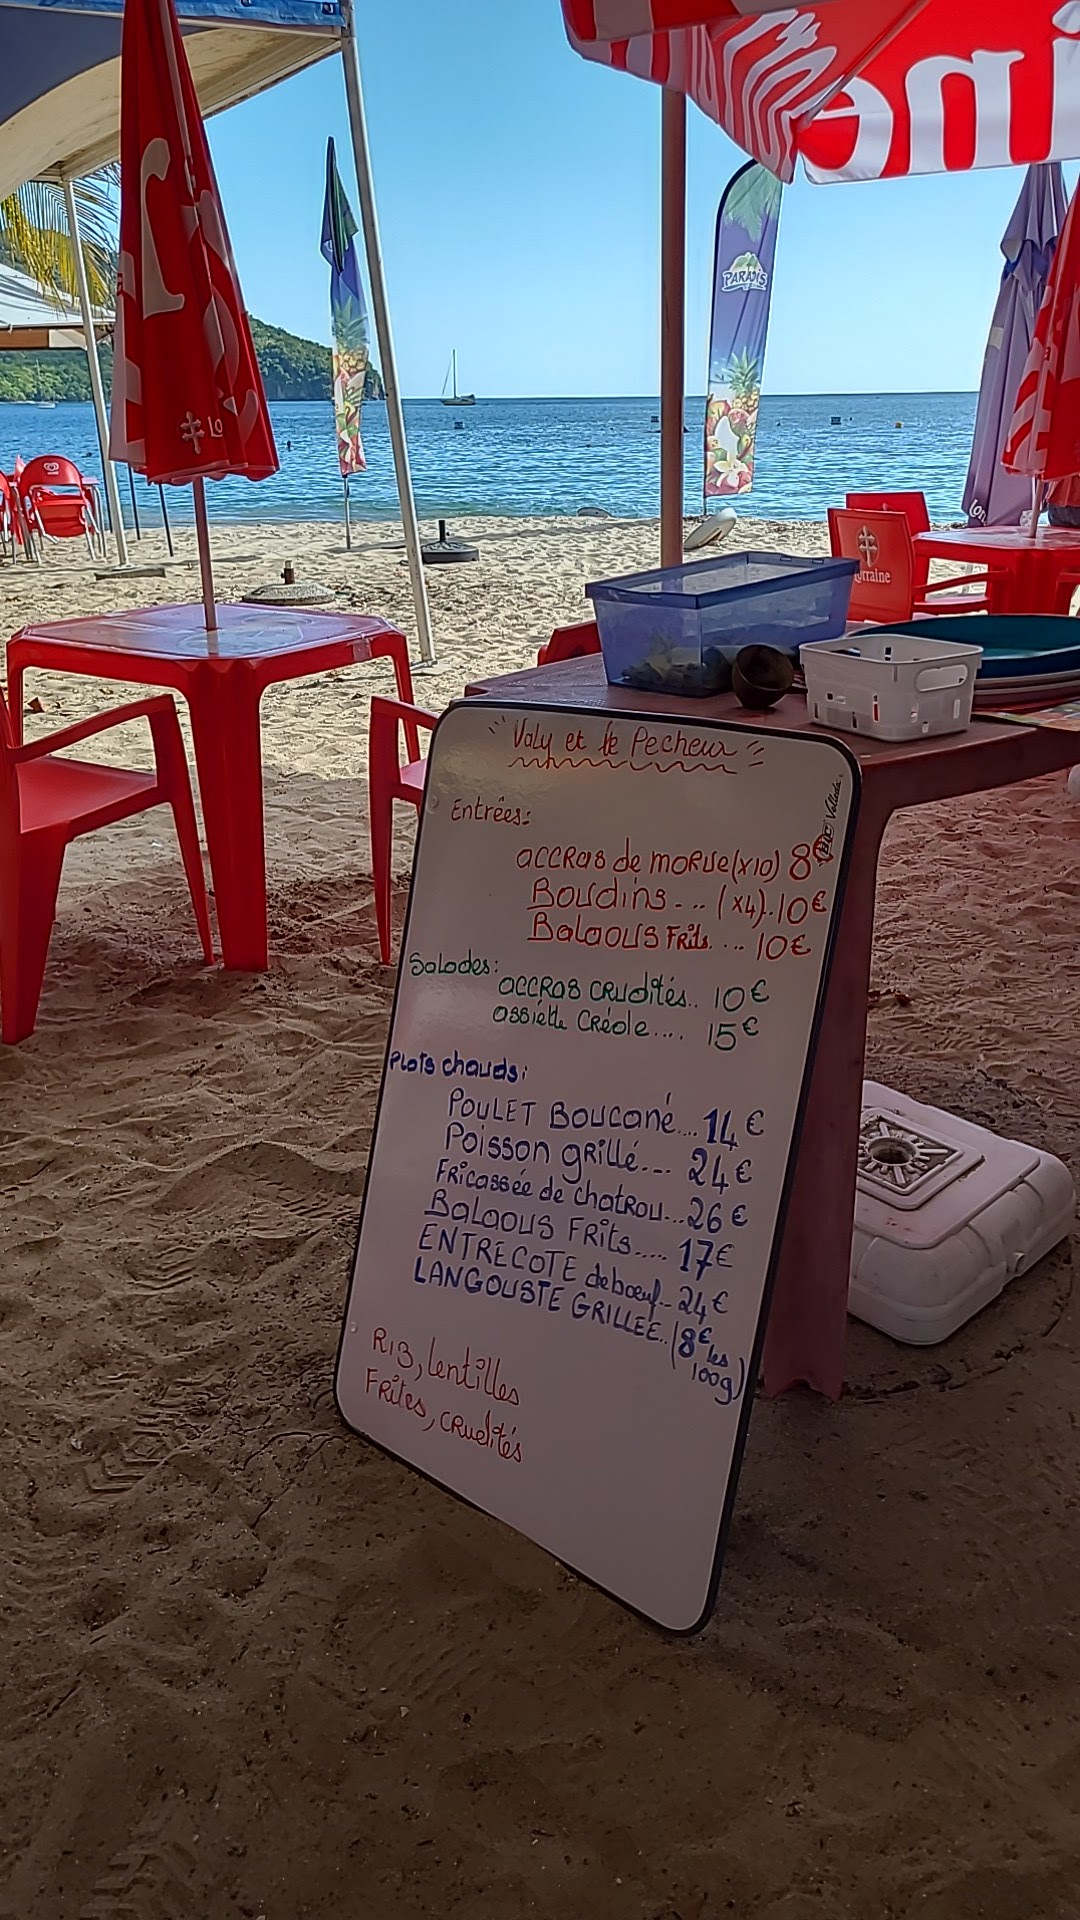 ine
PARADIS
Lo
Lorraine
Lor
Valy et le Pecheur
BIC Velleda
Entrées:
accras de morue (x10) 8€
Boudins... (x4)..10€
Balaous Frits.... 10€
Salades:
accras crudités.. 10€
assiette créole.... 15€
Plats chauds:
POULET BOUCANÉ... 14€
Poisson grillé.... 24€
Fricassée de chatrou...26€
Balaous Frits.... 17€
ENTRECOTE de bœuf.. 24€
LANGOUSTE GRILLEE..(8€ les
100g)
Riz, lentilles
Frites, crudités